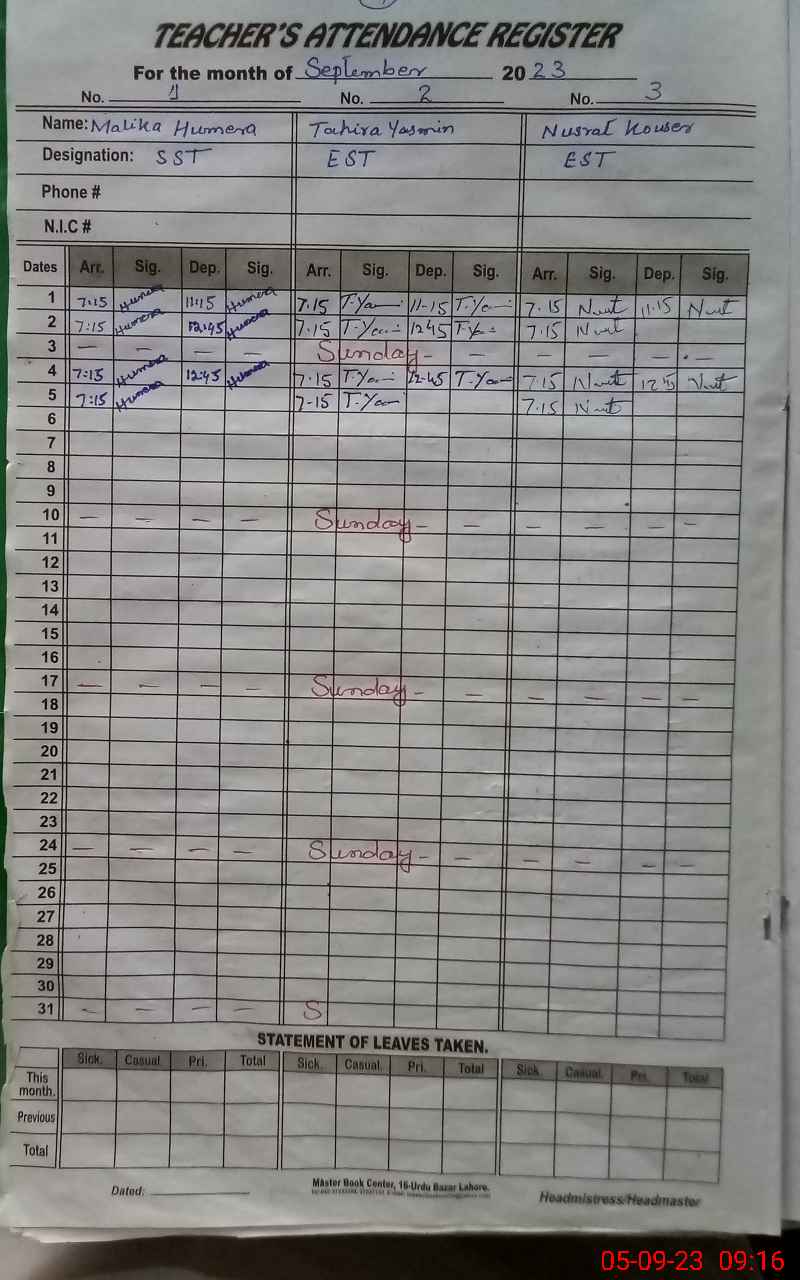 TEACHER'S ATTENDANCE REGISTER
For the month of September 2023
No. 1 No. 2 No. 3
Name: Malika Humera Tahira Yasmin Nusrat Kouser
Designation: SST EST EST
Phone #
N.I.C #
Dates Arr. Sig. Dep. Sig. Arr. Sig. Dep. Sig. Arr. Sig. Dep. Sig.
1 7:15 Humera 11:15 Humera 7.15 T.Yas 11-15 T.Yas 7.15 11.15
2 7:15 Humera 12:45 Humera 7.15 T.Yas 1245 T.Yas 7.15
3 — — — — Sunday - — — — — —
4 7:15 Humera 12:45 Humera 7.15 T.Yas 12-45 T.Yas 7.15
5 7:15 Humera 7-15 T.Yas 7.15
6
7
8
9
10 — — — — Sunday - — — — — —
11
12
13
14
15
16
17 — — — — Sunday - — — — — —
18
19
20
21
22
23
24 — — — — Sunday - — — — — —
25
26
27
28
29
30
31 — — — — S
STATEMENT OF LEAVES TAKEN.
Sick. Casual. Pri. Total Sick. Casual. Pri. Total Sick. Casual. Pri. Total
This month.
Previous
Total
Dated:
Master Book Center, 16-Urdu Bazar Lahore.
Headmistress/Headmaster
05-09-23 09:16